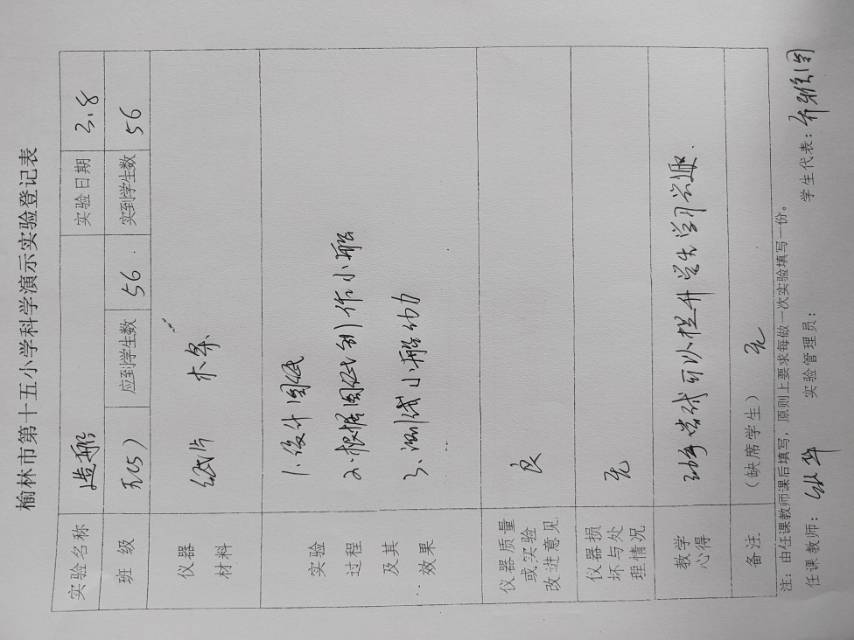 榆林市第十五小学科学演示实验登记表
实验名称 造船 实验日期 3.8
班级 五(5) 应到学生数 56 实到学生数 56
仪器材料 纸片 木条
实验过程及其效果
1.设计图纸
2.根据图纸制作小船
3.测试小船动力
仪器质量或实验改进意见 良
仪器损坏与处理情况 无
教学心得 可以提升学生学习兴趣.
备注 (缺席学生) 无
注：由任课教师课后填写，原则上要求每做一次实验填写一份。
任课教师： 实验管理员： 学生代表：